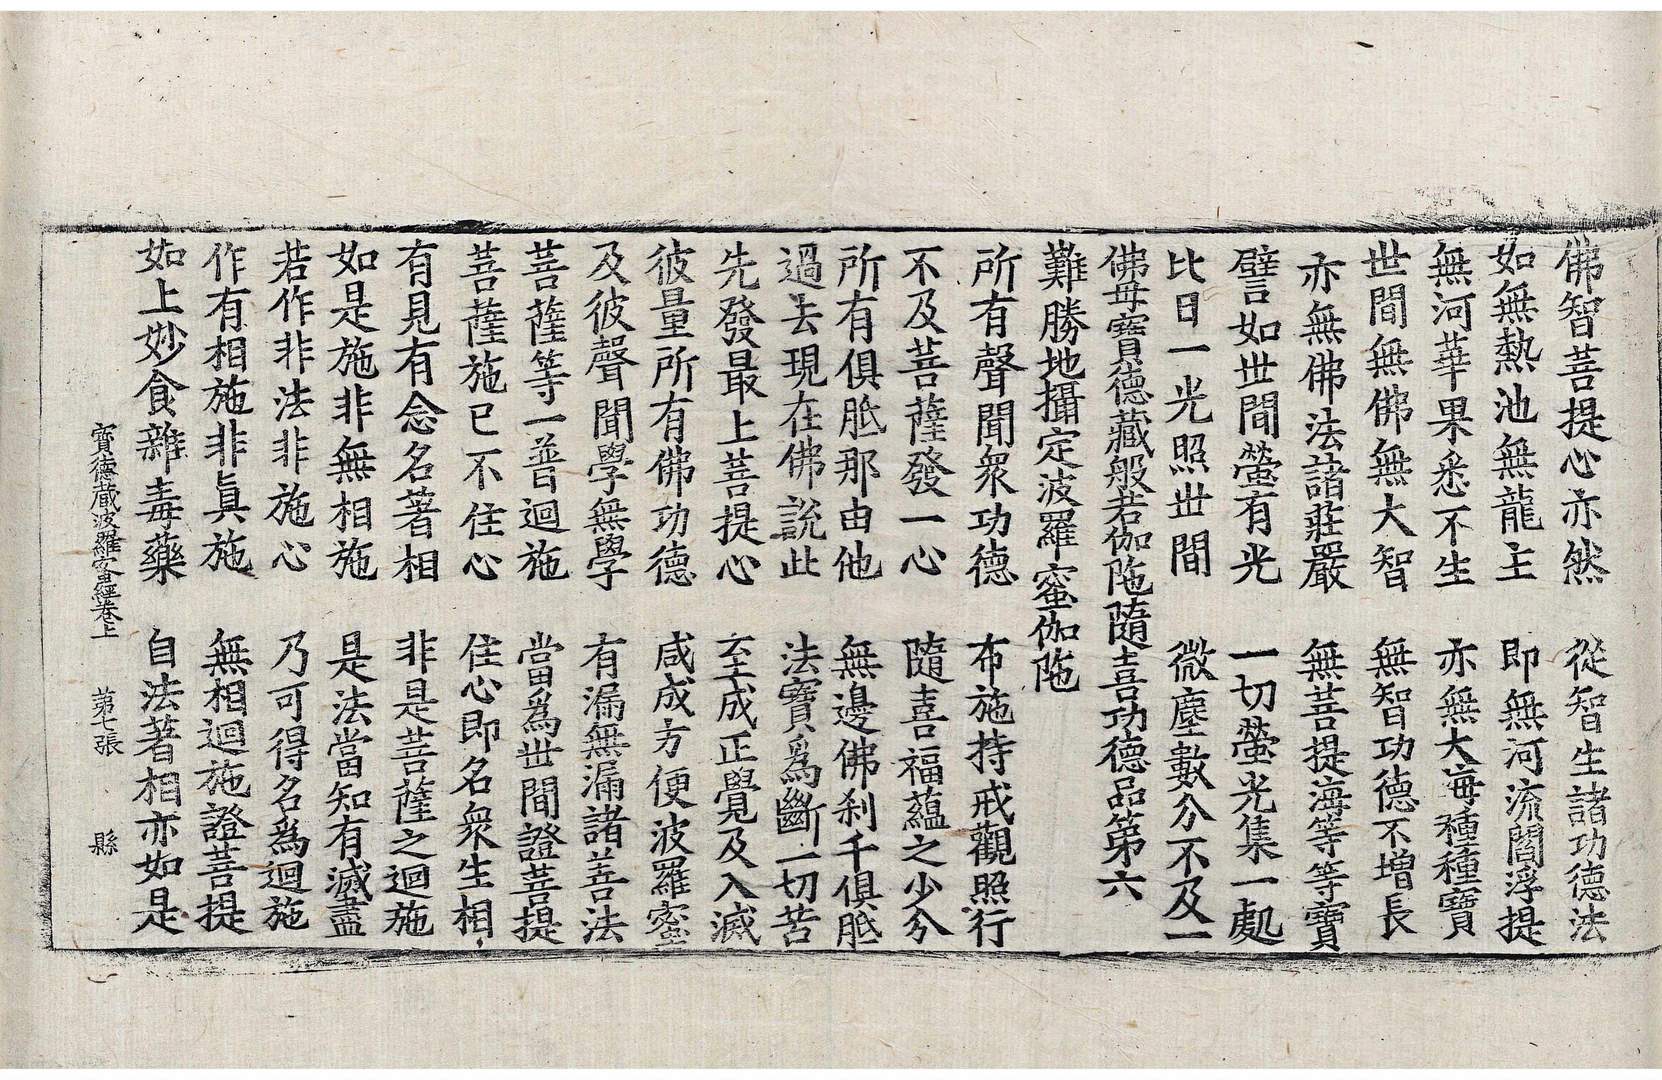 佛智菩提心亦然　從智生諸功德法
如無熱池無龍主　即無河流閻浮提
無河華果悉不生　亦無大海種種寶
世間無佛無大智　無智功德不增長
亦無佛法諸莊嚴　無菩提海等等寶
譬如世間螢有光　一切螢光集一處
比日一光照世間　微塵數分不及一
佛母寶德藏般若伽陁隨喜功德品第六
難勝地攝定波羅蜜伽陁
所有聲聞衆功德　布施持戒觀照行
不及菩薩發一心　隨喜福蘊之少分
所有俱胝那由他　無邊佛刹千俱胝
過去現在佛說此　法寶爲斷一切苦
先發最上菩提心　至成正覺及入滅
彼量所有佛功德　咸成方便波羅蜜
及彼聲聞學無學　有漏無漏諸善法
菩薩等一普迴施　當爲世間證菩提
菩薩施已不住心　住心即名衆生相
有見有念名著相　非是菩薩之迴施
如是施非無相施　是法當知有滅盡
若作非法非施心　乃可得名爲迴施
作有相施非眞施　無相迴施證菩提
如上妙食雜毒藥　自法著相亦如是
寶德藏波羅蜜經卷上　第七張　縣